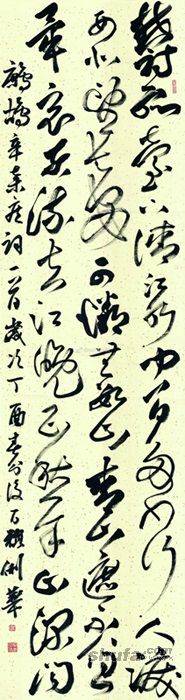 鬱孤臺下清江水中間多少行人淚
西北望長安可憐無數山青山遮不住
畢竟東流去江晚正愁余山深聞
鷓鴣辛棄疾詞一首歲次丁酉春
shufa.com